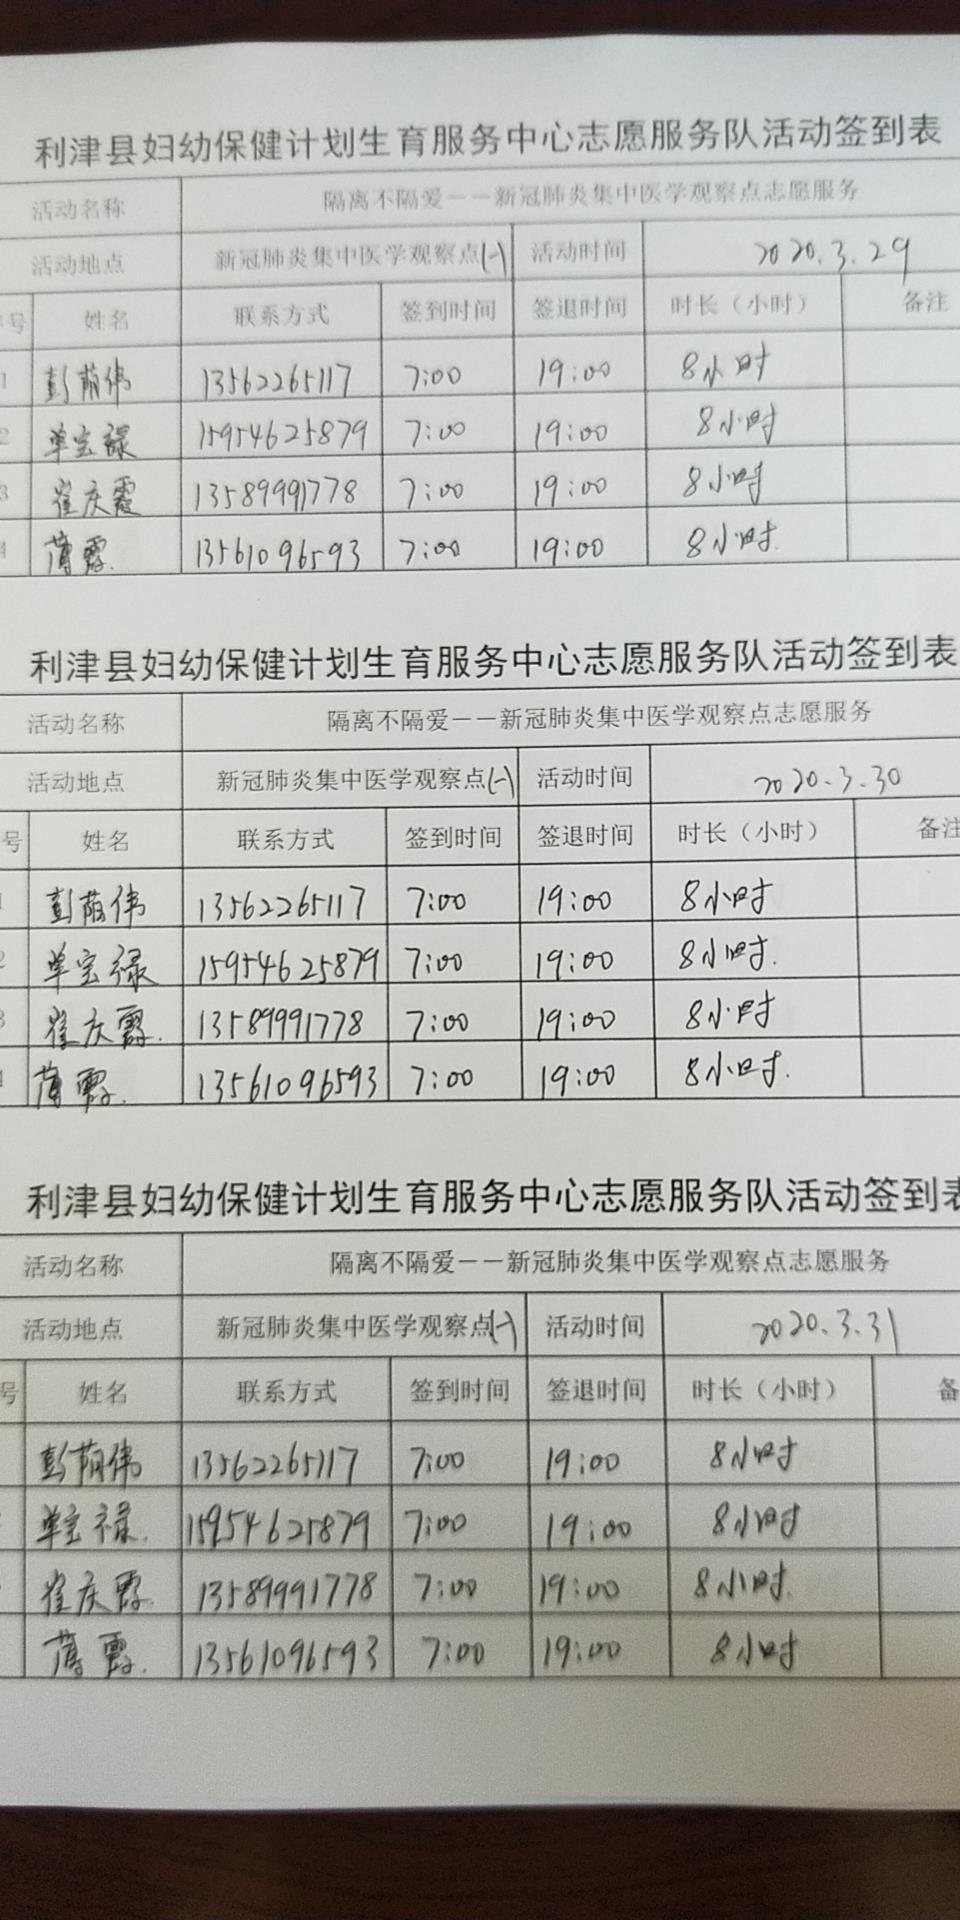 利津县妇幼保健计划生育服务中心志愿服务队活动签到表
活动名称 隔离不隔爱——新冠肺炎集中医学观察点志愿服务
活动地点 新冠肺炎集中医学观察点(一) 活动时间 2020.3.29
号 姓名 联系方式 签到时间 签退时间 时长（小时） 备注
1 彭荫伟 13562265117 7:00 19:00 8小时
2 单宝禄 15954625879 7:00 19:00 8小时
3 崔庆霞 13589991778 7:00 19:00 8小时
4 薄霞. 13561096593 7:00 19:00 8小时.
利津县妇幼保健计划生育服务中心志愿服务队活动签到表
活动名称 隔离不隔爱——新冠肺炎集中医学观察点志愿服务
活动地点 新冠肺炎集中医学观察点(一) 活动时间 2020.3.30
号 姓名 联系方式 签到时间 签退时间 时长（小时） 备注
1 彭荫伟 13562265117 7:00 19:00 8小时
2 单宝禄 15954625879 7:00 19:00 8小时.
3 崔庆霞. 13589991778 7:00 19:00 8小时
4 薄霞. 13561096593 7:00 19:00 8小时.
利津县妇幼保健计划生育服务中心志愿服务队活动签到表
活动名称 隔离不隔爱——新冠肺炎集中医学观察点志愿服务
活动地点 新冠肺炎集中医学观察点(一) 活动时间 2020.3.31
号 姓名 联系方式 签到时间 签退时间 时长（小时） 备
彭荫伟 13562265117 7:00 19:00 8小时
单宝禄. 15954625879 7:00 19:00 8小时
崔庆霞. 13589991778 7:00 19:00 8小时.
薄霞. 13561096593 7:00 19:00 8小时